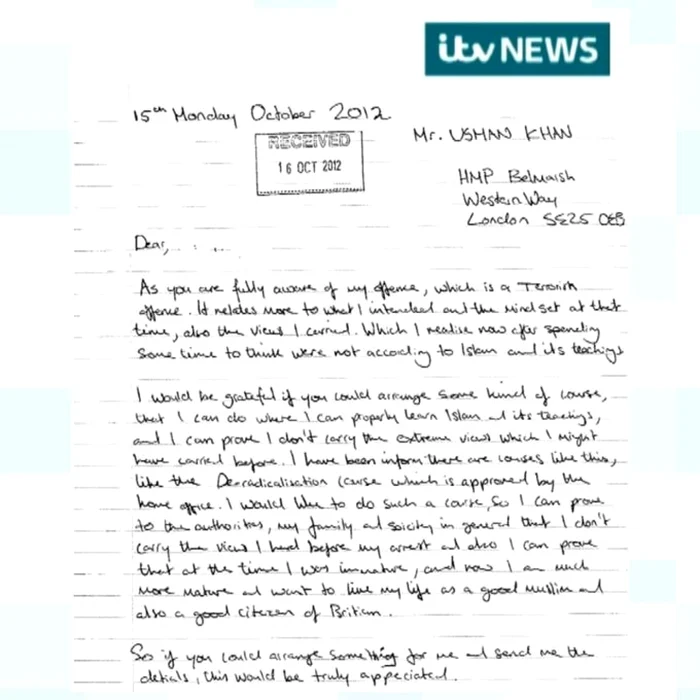 itv NEWS
15th Monday October 2012
RECEIVED
16 OCT 2012
Mr. USMAN KHAN
HMP Belmarsh
Western Way
London SE25 0EB
Dear,
As you are fully aware of my offence, which is a Terrorish
offence. It relates more to what I intended and the mind set at that
time, also the views I carried. Which I realise now after spending
some time to think were not according to Islam and its teachings
I would be grateful if you could arrange some kind of course,
that I can do where I can properly learn Islam and its teachings,
and I can prove I don't carry the extreme views which I might
have carried before. I have been inform there are courses like this,
like the Deradicalisation course which is approved by the
home office. I would like to do such a course, so I can prove
to the authorities, my family and soicity in general that I don't
carry the views I had before my arrest and also I can prove
that at the time I was immature, and now I am much
more mature and want to live my life as a good muslim and
also a good citizen of Britian.
So if you could arrange something for me and send me the
details, this would be truly appeciated.